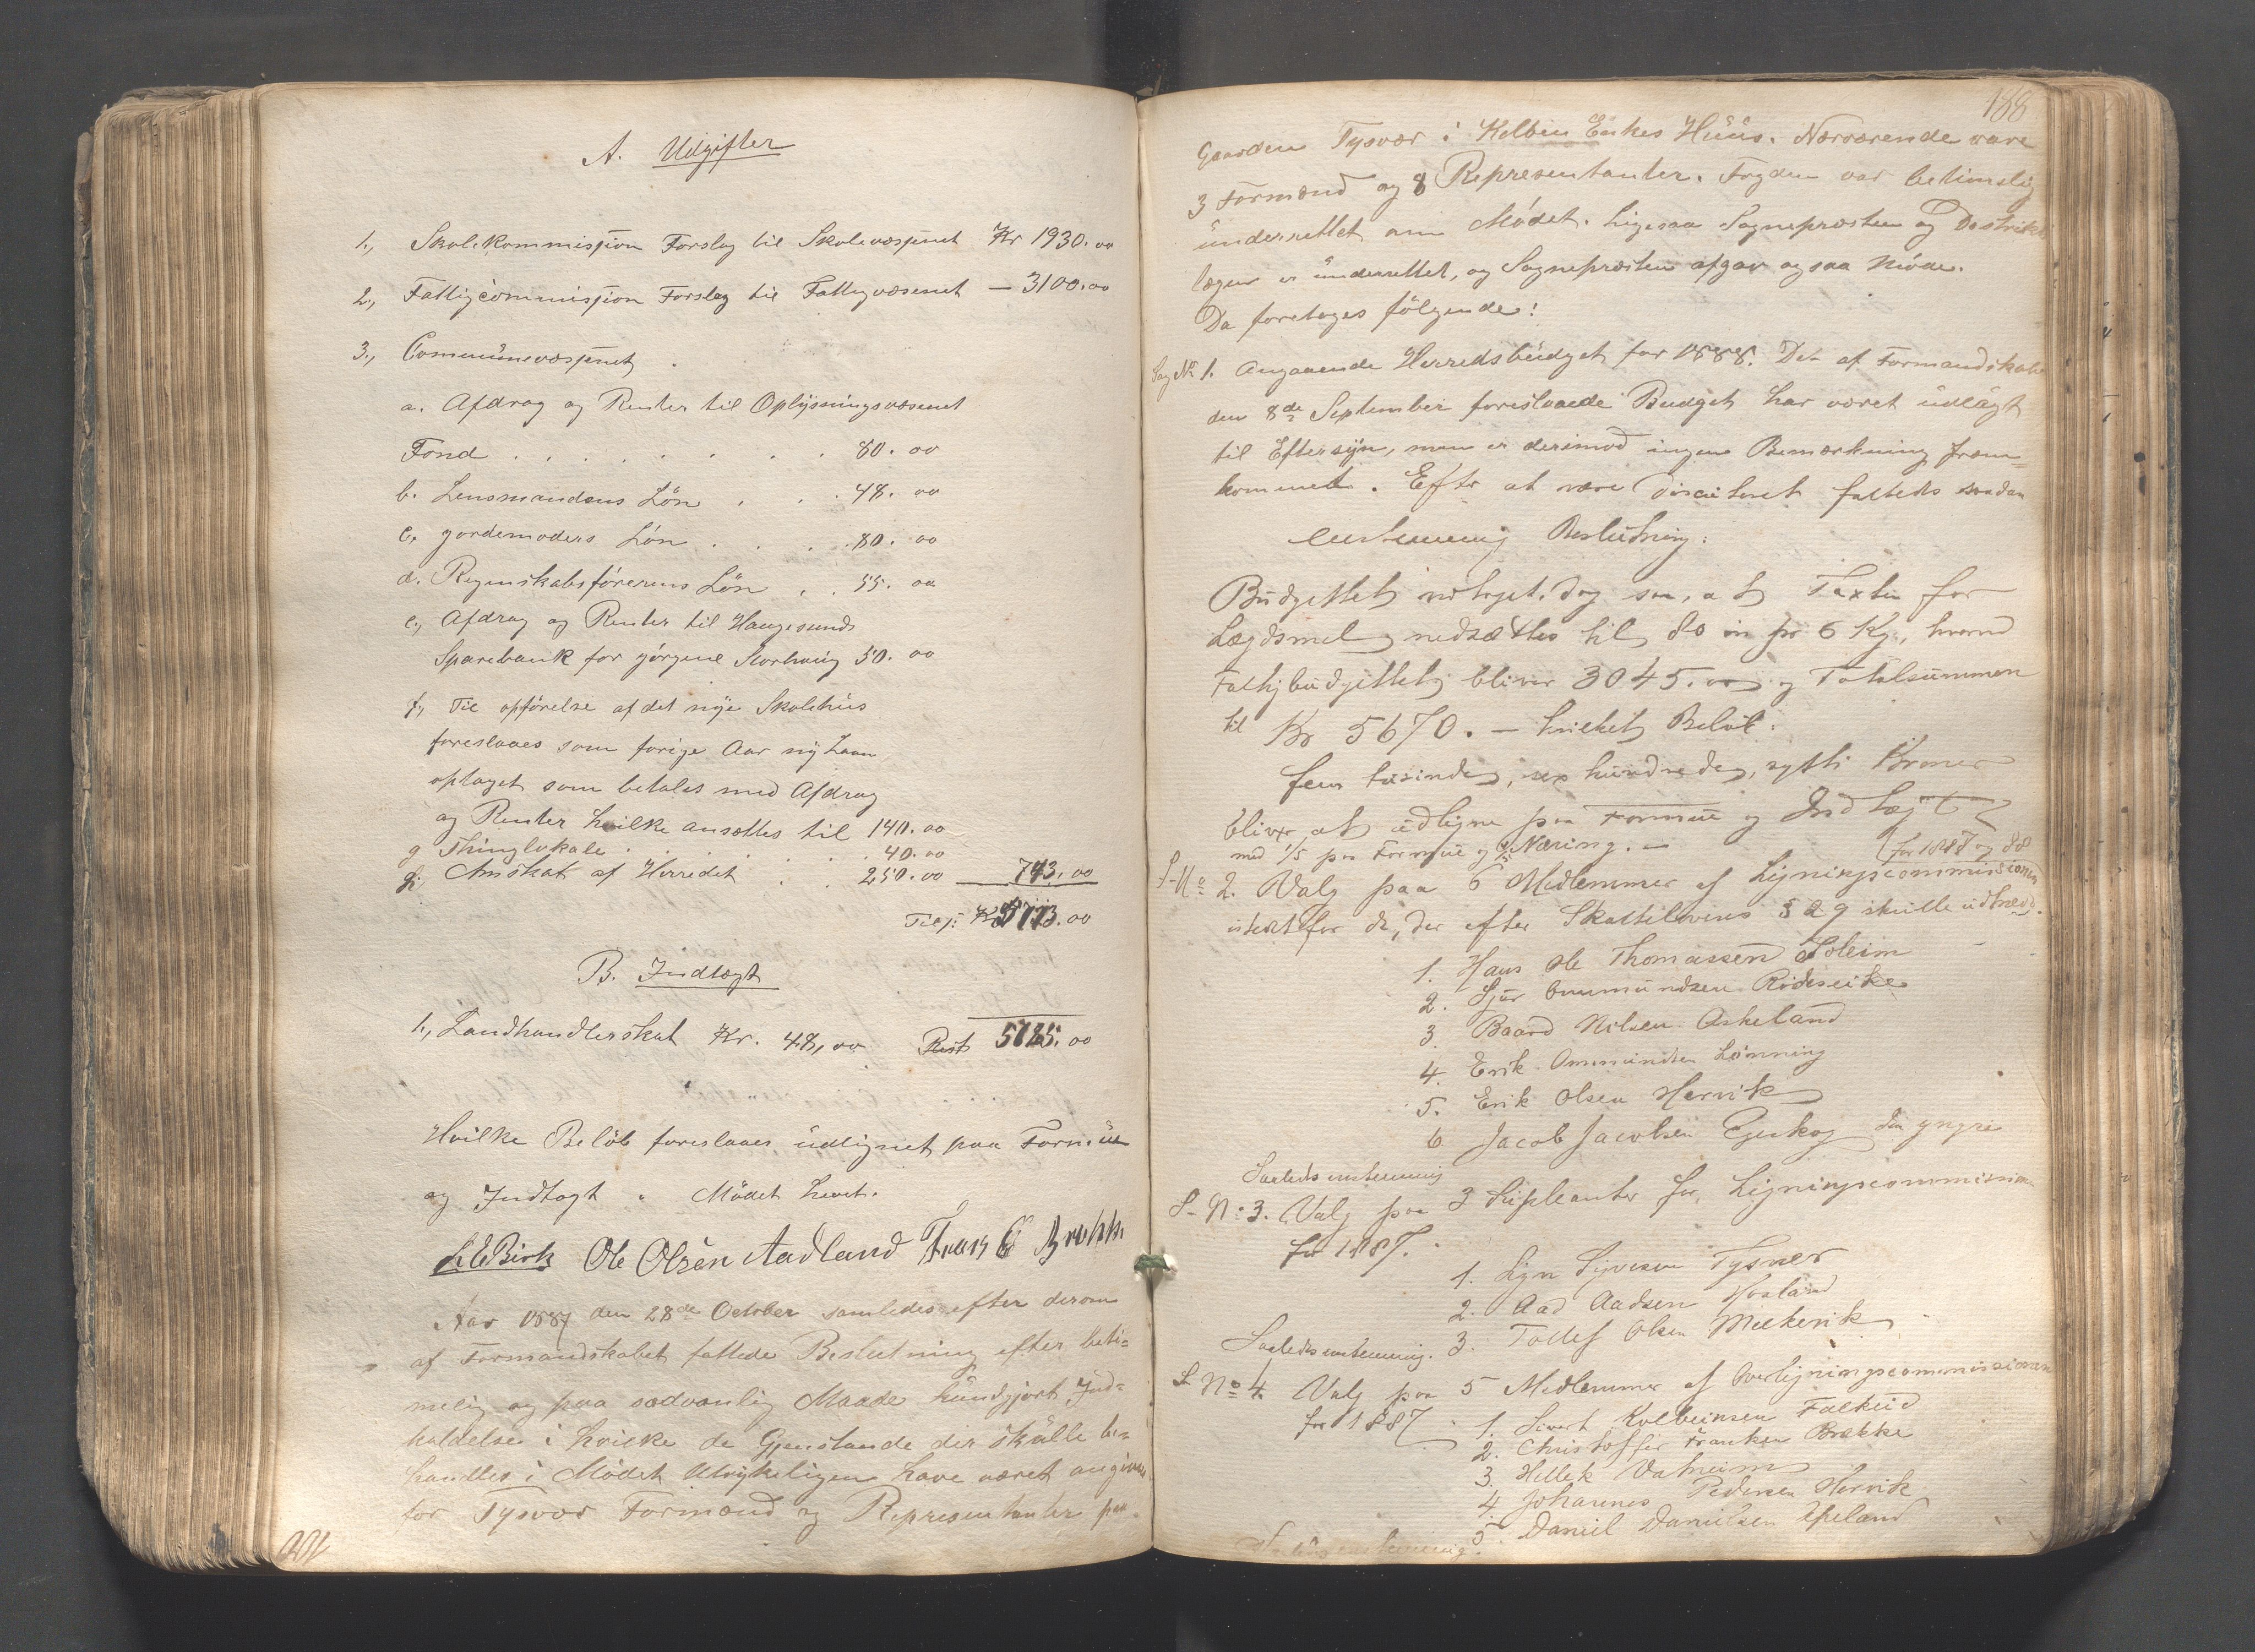 A. Udgifter
1., Skolekommission Forslag til Skolevæsenet Kr 1930.00
2., Fattigcommission Forslag til Fattigvæsenet — 3100.00
3., Communevæsenet.
a. Afdrag og Renter til Oplysningsvæsenet
Fond . . . . . . . . 80.00
b. Lensmandens Lön . . . 48.00
c. gordemoders Lön . . . . 80.00
d. Regnskabsförerens Lön . . 55.00
e., Afdrag og Renter til Haugesunds
Sparebank for görgine Storhaug 50.00
f., Til opförelse af det nye Skolehus
foreslaaes som forige Aar ny Laan
optaget som betales med Afdrag
og Renter hvilke ansættes til 140.00
g Thinglokale . . . . . . 40.00
h., Amtskat af Herredet . . 250.00 743,00
Tils: Kr 5773.00
B. Indtægt
1., Landhandlerskat Kr. 48,00 Rest 5725.00
Hvilke Belöb foreslaaes udlignet paa Formue
og Indtægt. Mödet hævet.
L E Birk Ole Olsen Aadland Frans C Brekke
Aar 1887 den 28de October samledes efter derom
af Formandskabet fattede Beslutning efter beti=
melig og paa sædvanlig Maade kundgjort Ind=
kaldelse i hvilke de Gjenstande der skulle be=
handles i Mödet udtrykeligen have været angivne
for Tysvær Formænd og Representanter paa
188
Gaarden Tysvær i Kolbein Enkes Huus. Nærværende vare
3 Formænd og 8 Representanter. Fogden var betimelig
underrettet om Mödet. Ligesaa Sognepresten og Distrikts
lægen er underrettet, og Sognepræsten afgav ogsaa Möde.
Da foretoges fölgende:
Sag No 1. Angaaende Herredsbudget for 1888. Det af Formandskabet
den 8de September foreslaaede Budget har været udlagt
til Eftersyn, men er derimod ingen Bemærkning frem=
kommet. Efter at være discuteret fattedes saadan
enstemmig Beslutning:
Budgettet vedtaget. Dog saa, at Taxten for
Lægdsmel nedsættes til 80 öre pr 6 Kg., hvorved
Fattigbudgettet bliver 3045.00 og Totalsummen
til Kr 5670. — hvilket Belöb.
fem tusinde, sex hundrede, sytti Kroner
bliver at udligne paa Formue og Indtægt
med 1/5 paa Formue og Næring. —
for 1887 og 88
S-No 2. Valg paa 6 Medlemmer af Ligningscommissionen
istedt for de, der efter Skattelovens § 29 skulle udtræde.
1. Hans Ole Thomassen Soleim
2. Sjur Ommundsen Rödseike
3. Baard Nilsen Askeland
4. Erik Ommundsen Lönning
5. Erik Olsen Hervik
6 Jacob Jacobsen Egeskog den yngre
Saaledes enstemmig
S- No 3. Valg paa 3 Supleanter for Ligningscommissionen
for 1887.
1. Lyn Syvesen Tysver
2. Aad Aadsen Hovland
Saaledes enstemmig. 3. Tollef Olsen Mækevik
S- No 4. Valg paa 5 Medlemmer af Overligningscommissionen
for 1887. 1. Sivert Kolbeinsen Falkeid
2. Christoffer Franksen Brekke
3. Hellek Vatneim
4. Johannes Pedersen Hervik
5. Daniel Danielsen Apeland
Saaledes enstemmig.